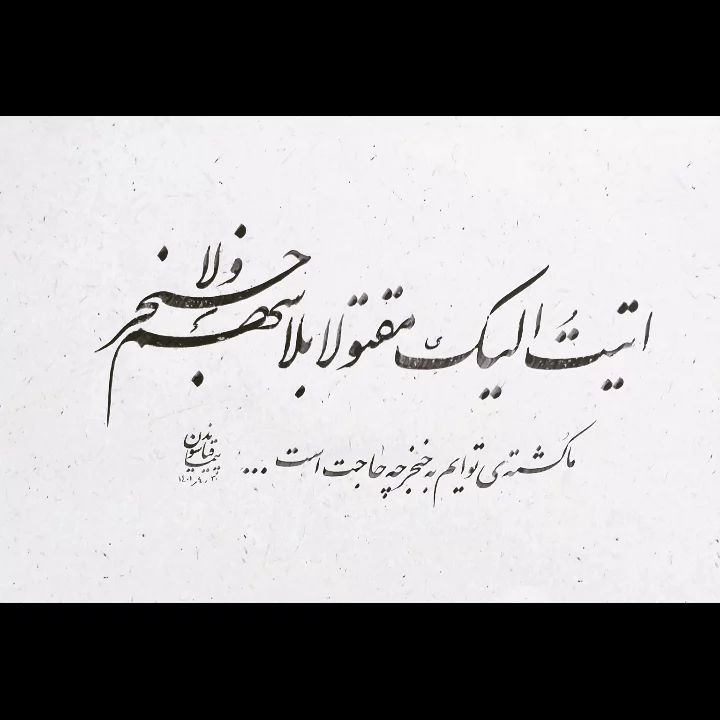 اتیتُ الیکَّ مقتولا بلا سهم ولا خنجر
ما کُشته‌ی توایم به خنجر چه حاجت است ...
۱۴۰۱٫۴٫۳۰